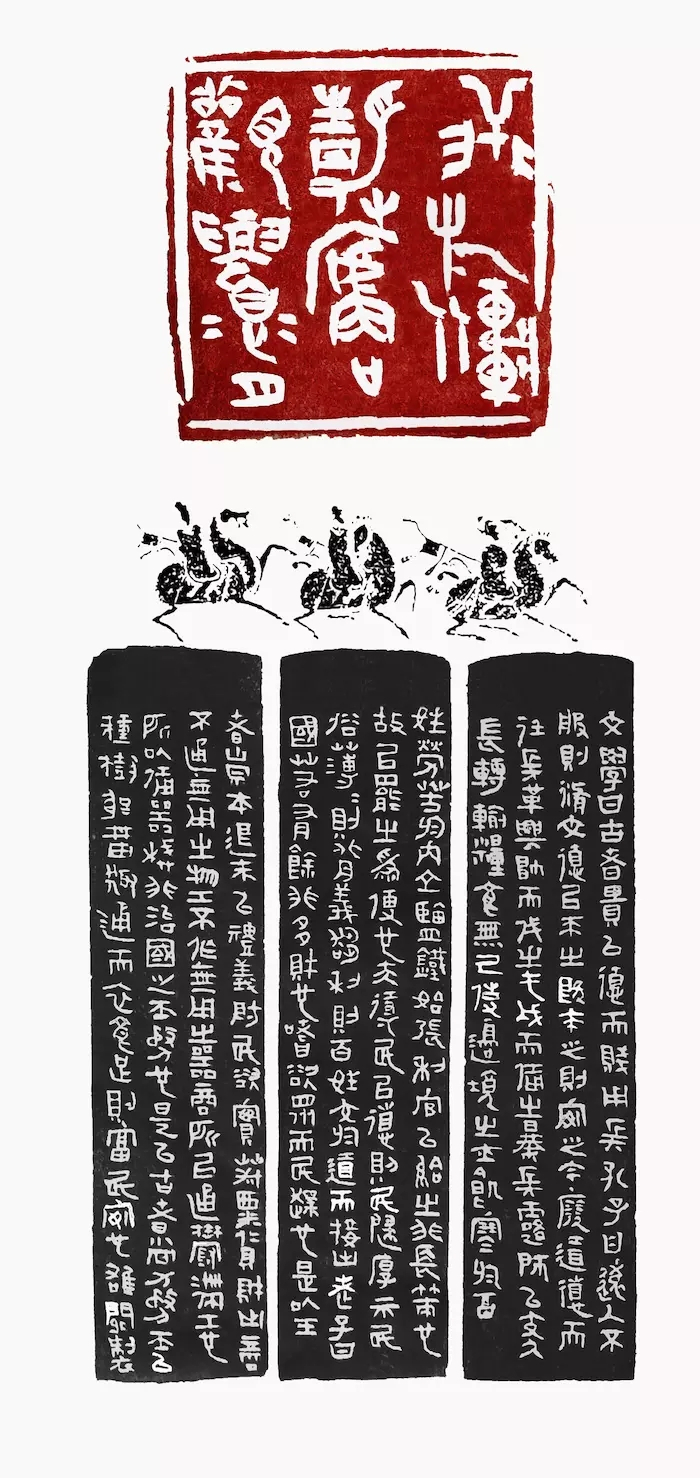 文學曰古者貴以德而賤用兵孔子曰遠人不
服則脩文德以來之既來之則安之今廢道德而
任兵革興師而伐之屯戍而備之暴兵露師以支久
長轉輸糧食無已使邊境之士飢寒於百
姓勞苦於內立鹽鐵始張利官以給之非長策也
故以罷之為便也夫導民以德則民厚示民
俗薄則背義趨利則百姓交於道而接市老子曰
國若有餘非多財也嗜欲眾而民躁也是以王
者崇本退末以禮義防民欲實菽粟貨財市商
不通無用之物工不作無用之器商所以通鬱滯工
所以備器械非治國之本務也是以古者尚力務本
種樹而衣食足則富民安也雖